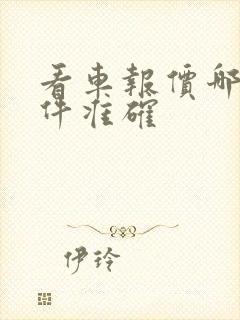 看車報價哪
件准確
伊玲